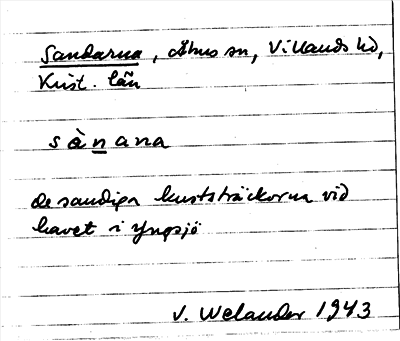 Sandarna, Åhus sn, Villands hd,
Krist. län
sànana
de sandiga kuststräckorna vid
havet i Yngsjö
V. Welander 1943